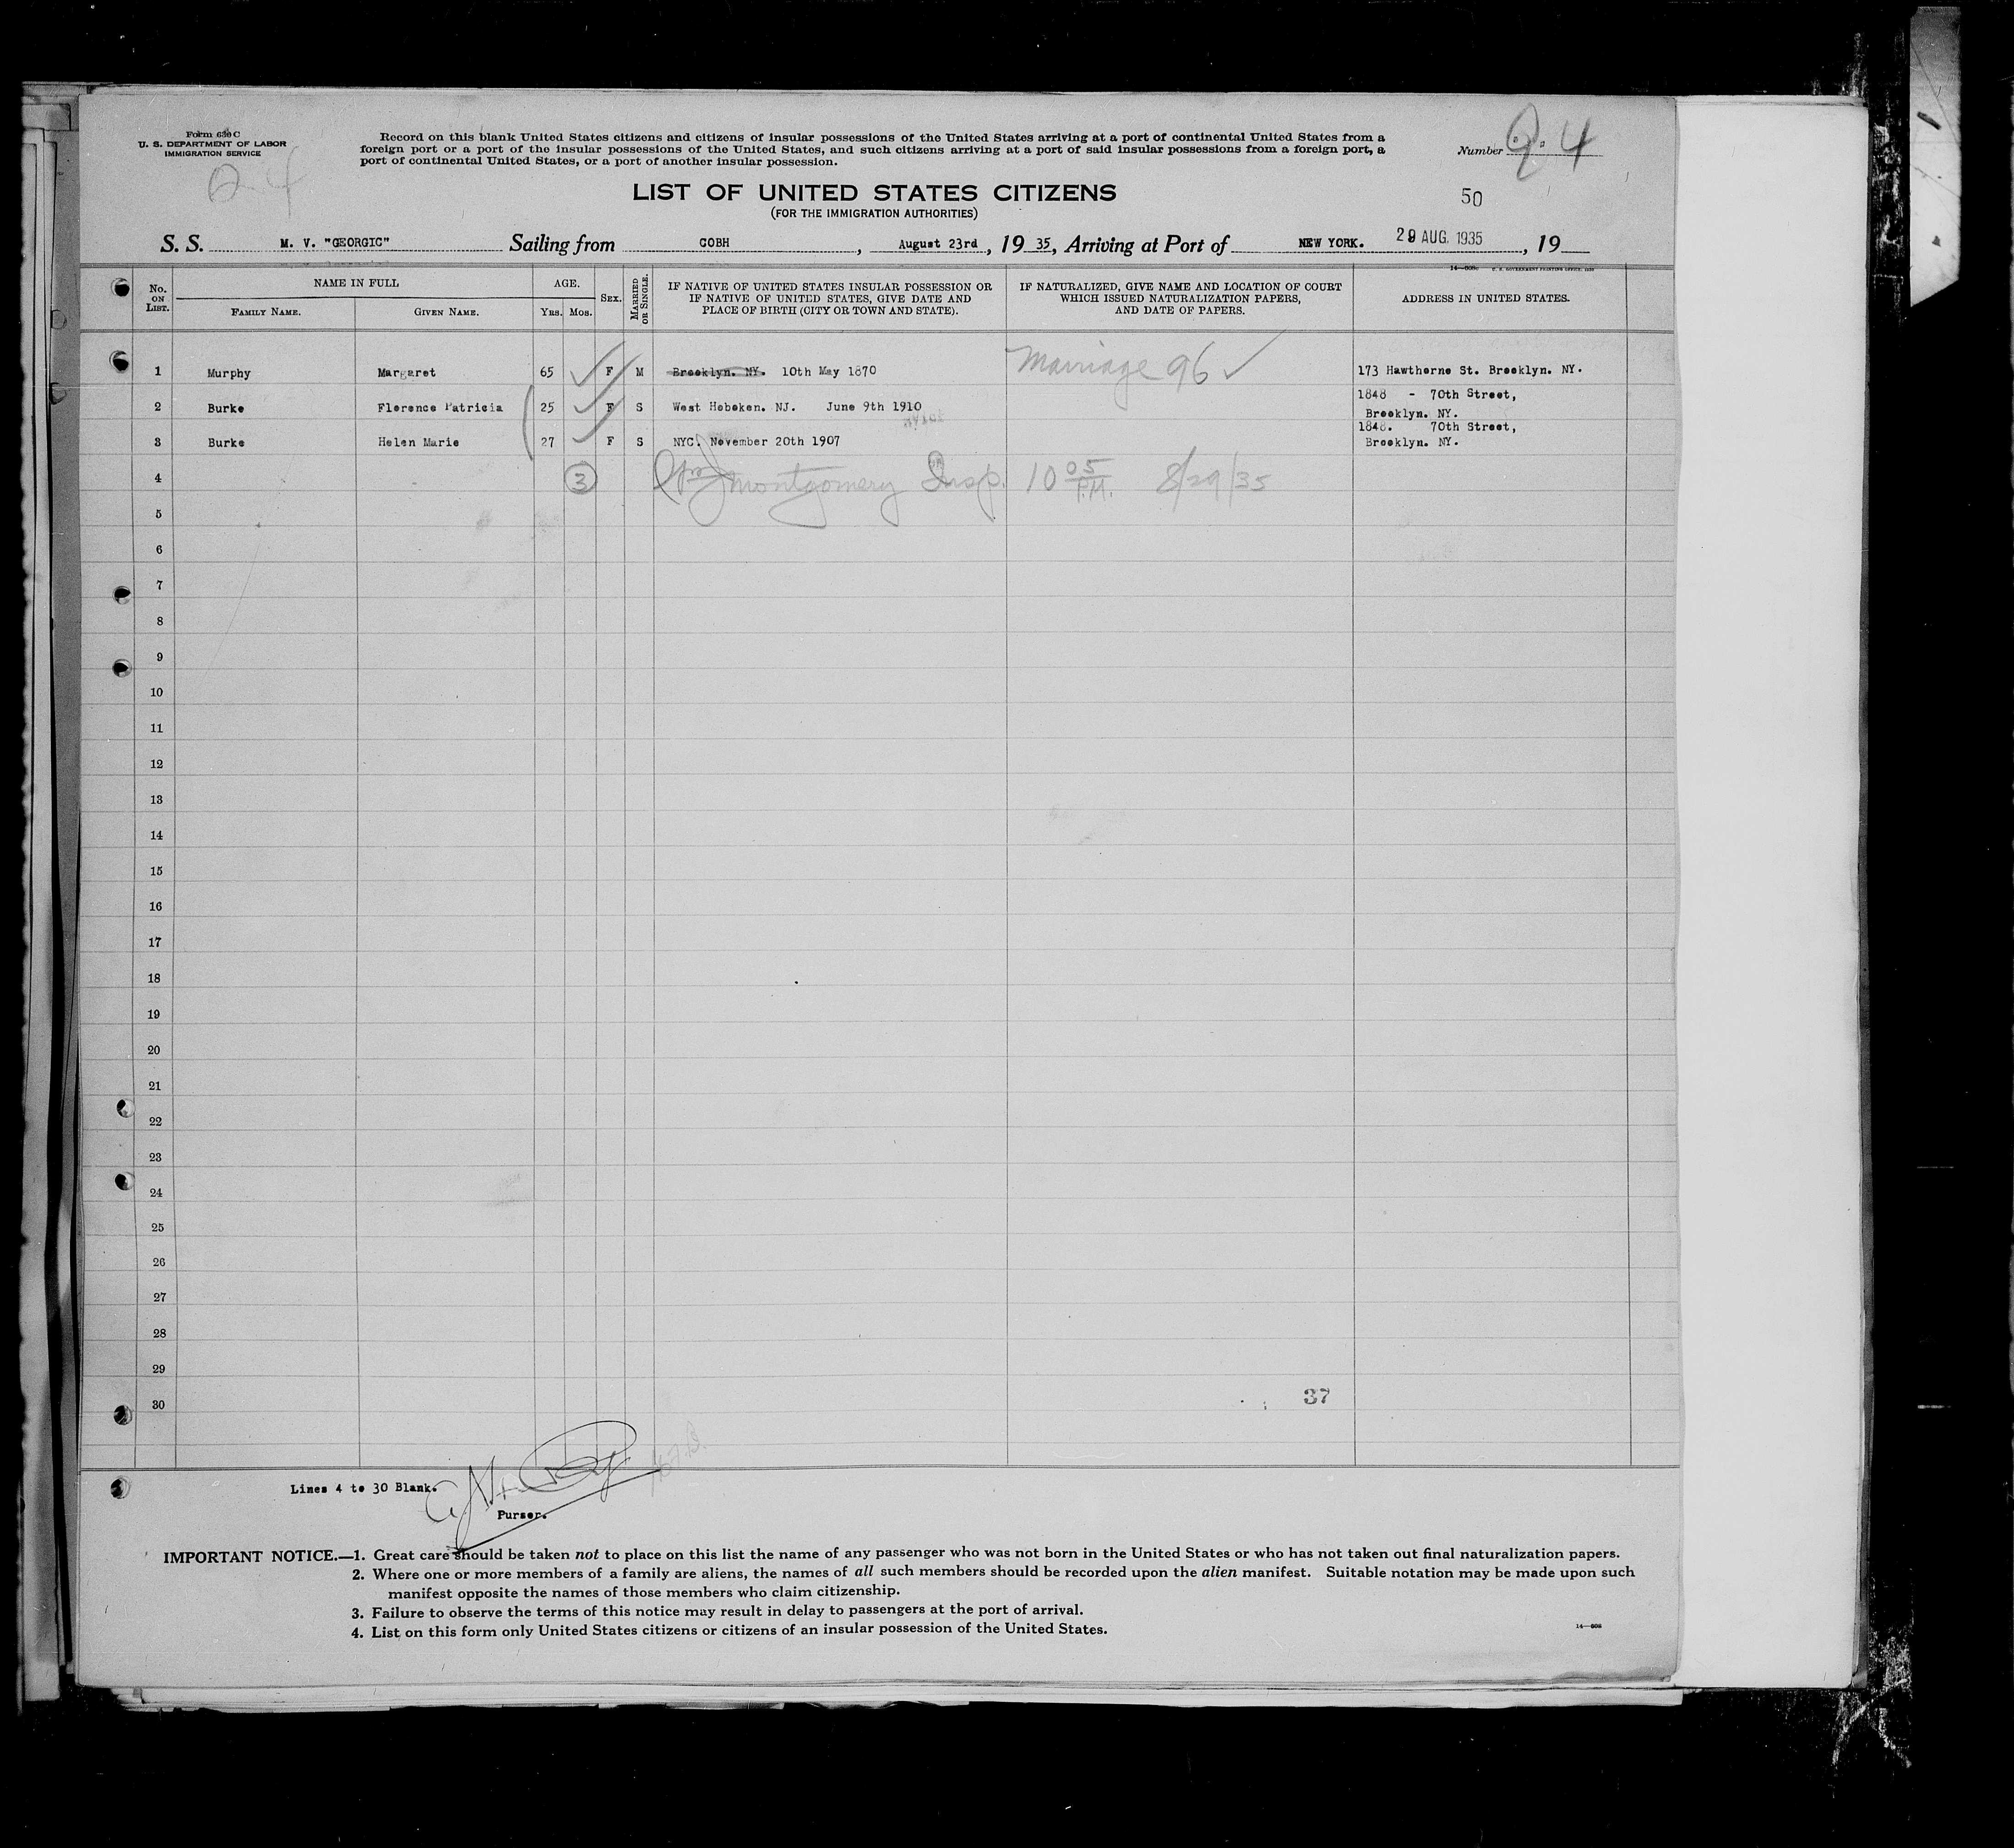 Form 630 C
U. S. DEPARTMENT OF LABOR
IMMIGRATION SERVICE
Record on this blank United States citizens and citizens of insular possessions of the United States arriving at a port of continental United States from a
foreign port or a port of the insular possessions of the United States, and such citizens arriving at a port of said insular possessions from a foreign port, a
port of continental United States, or a port of another insular possession.
Number Q. 4
Q 4
LIST OF UNITED STATES CITIZENS
50
(FOR THE IMMIGRATION AUTHORITIES)
S. S. M. V. "GEORGIC" Sailing from COBH, August 23rd, 19 35, Arriving at Port of NEW YORK. 29 AUG. 1935, 19
No. ON LIST. NAME IN FULL FAMILY NAME. GIVEN NAME. AGE. YRS. MOS. SEX. MARRIED OR SINGLE. IF NATIVE OF UNITED STATES INSULAR POSSESSION OR IF NATIVE OF UNITED STATES, GIVE DATE AND PLACE OF BIRTH (CITY OR TOWN AND STATE). IF NATURALIZED, GIVE NAME AND LOCATION OF COURT WHICH ISSUED NATURALIZATION PAPERS, AND DATE OF PAPERS. ADDRESS IN UNITED STATES.
1 Murphy Margaret 65 F M Brooklyn. NY. 10th May 1870 Marriage 96 173 Hawthorne St. Brooklyn. NY.
2 Burke Florence Patricia 25 F S West Hoboken. NJ. June 9th 1910 1848 - 70th Street, Brooklyn. NY.
3 Burke Helen Marie 27 F S NYC. November 20th 1907 1848. 70th Street, Brooklyn. NY.
4 3 Montgomery Insp. 10 05 P.M. 8/29/35
5
6
7
8
9
10
11
12
13
14
15
16
17
18
19
20
21
22
23
24
25
26
27
28
29
30 37
Lines 4 to 30 Blank.
Purser.
IMPORTANT NOTICE.—1. Great care should be taken not to place on this list the name of any passenger who was not born in the United States or who has not taken out final naturalization papers.
2. Where one or more members of a family are aliens, the names of all such members should be recorded upon the alien manifest. Suitable notation may be made upon such
manifest opposite the names of those members who claim citizenship.
3. Failure to observe the terms of this notice may result in delay to passengers at the port of arrival.
4. List on this form only United States citizens or citizens of an insular possession of the United States.
14—608